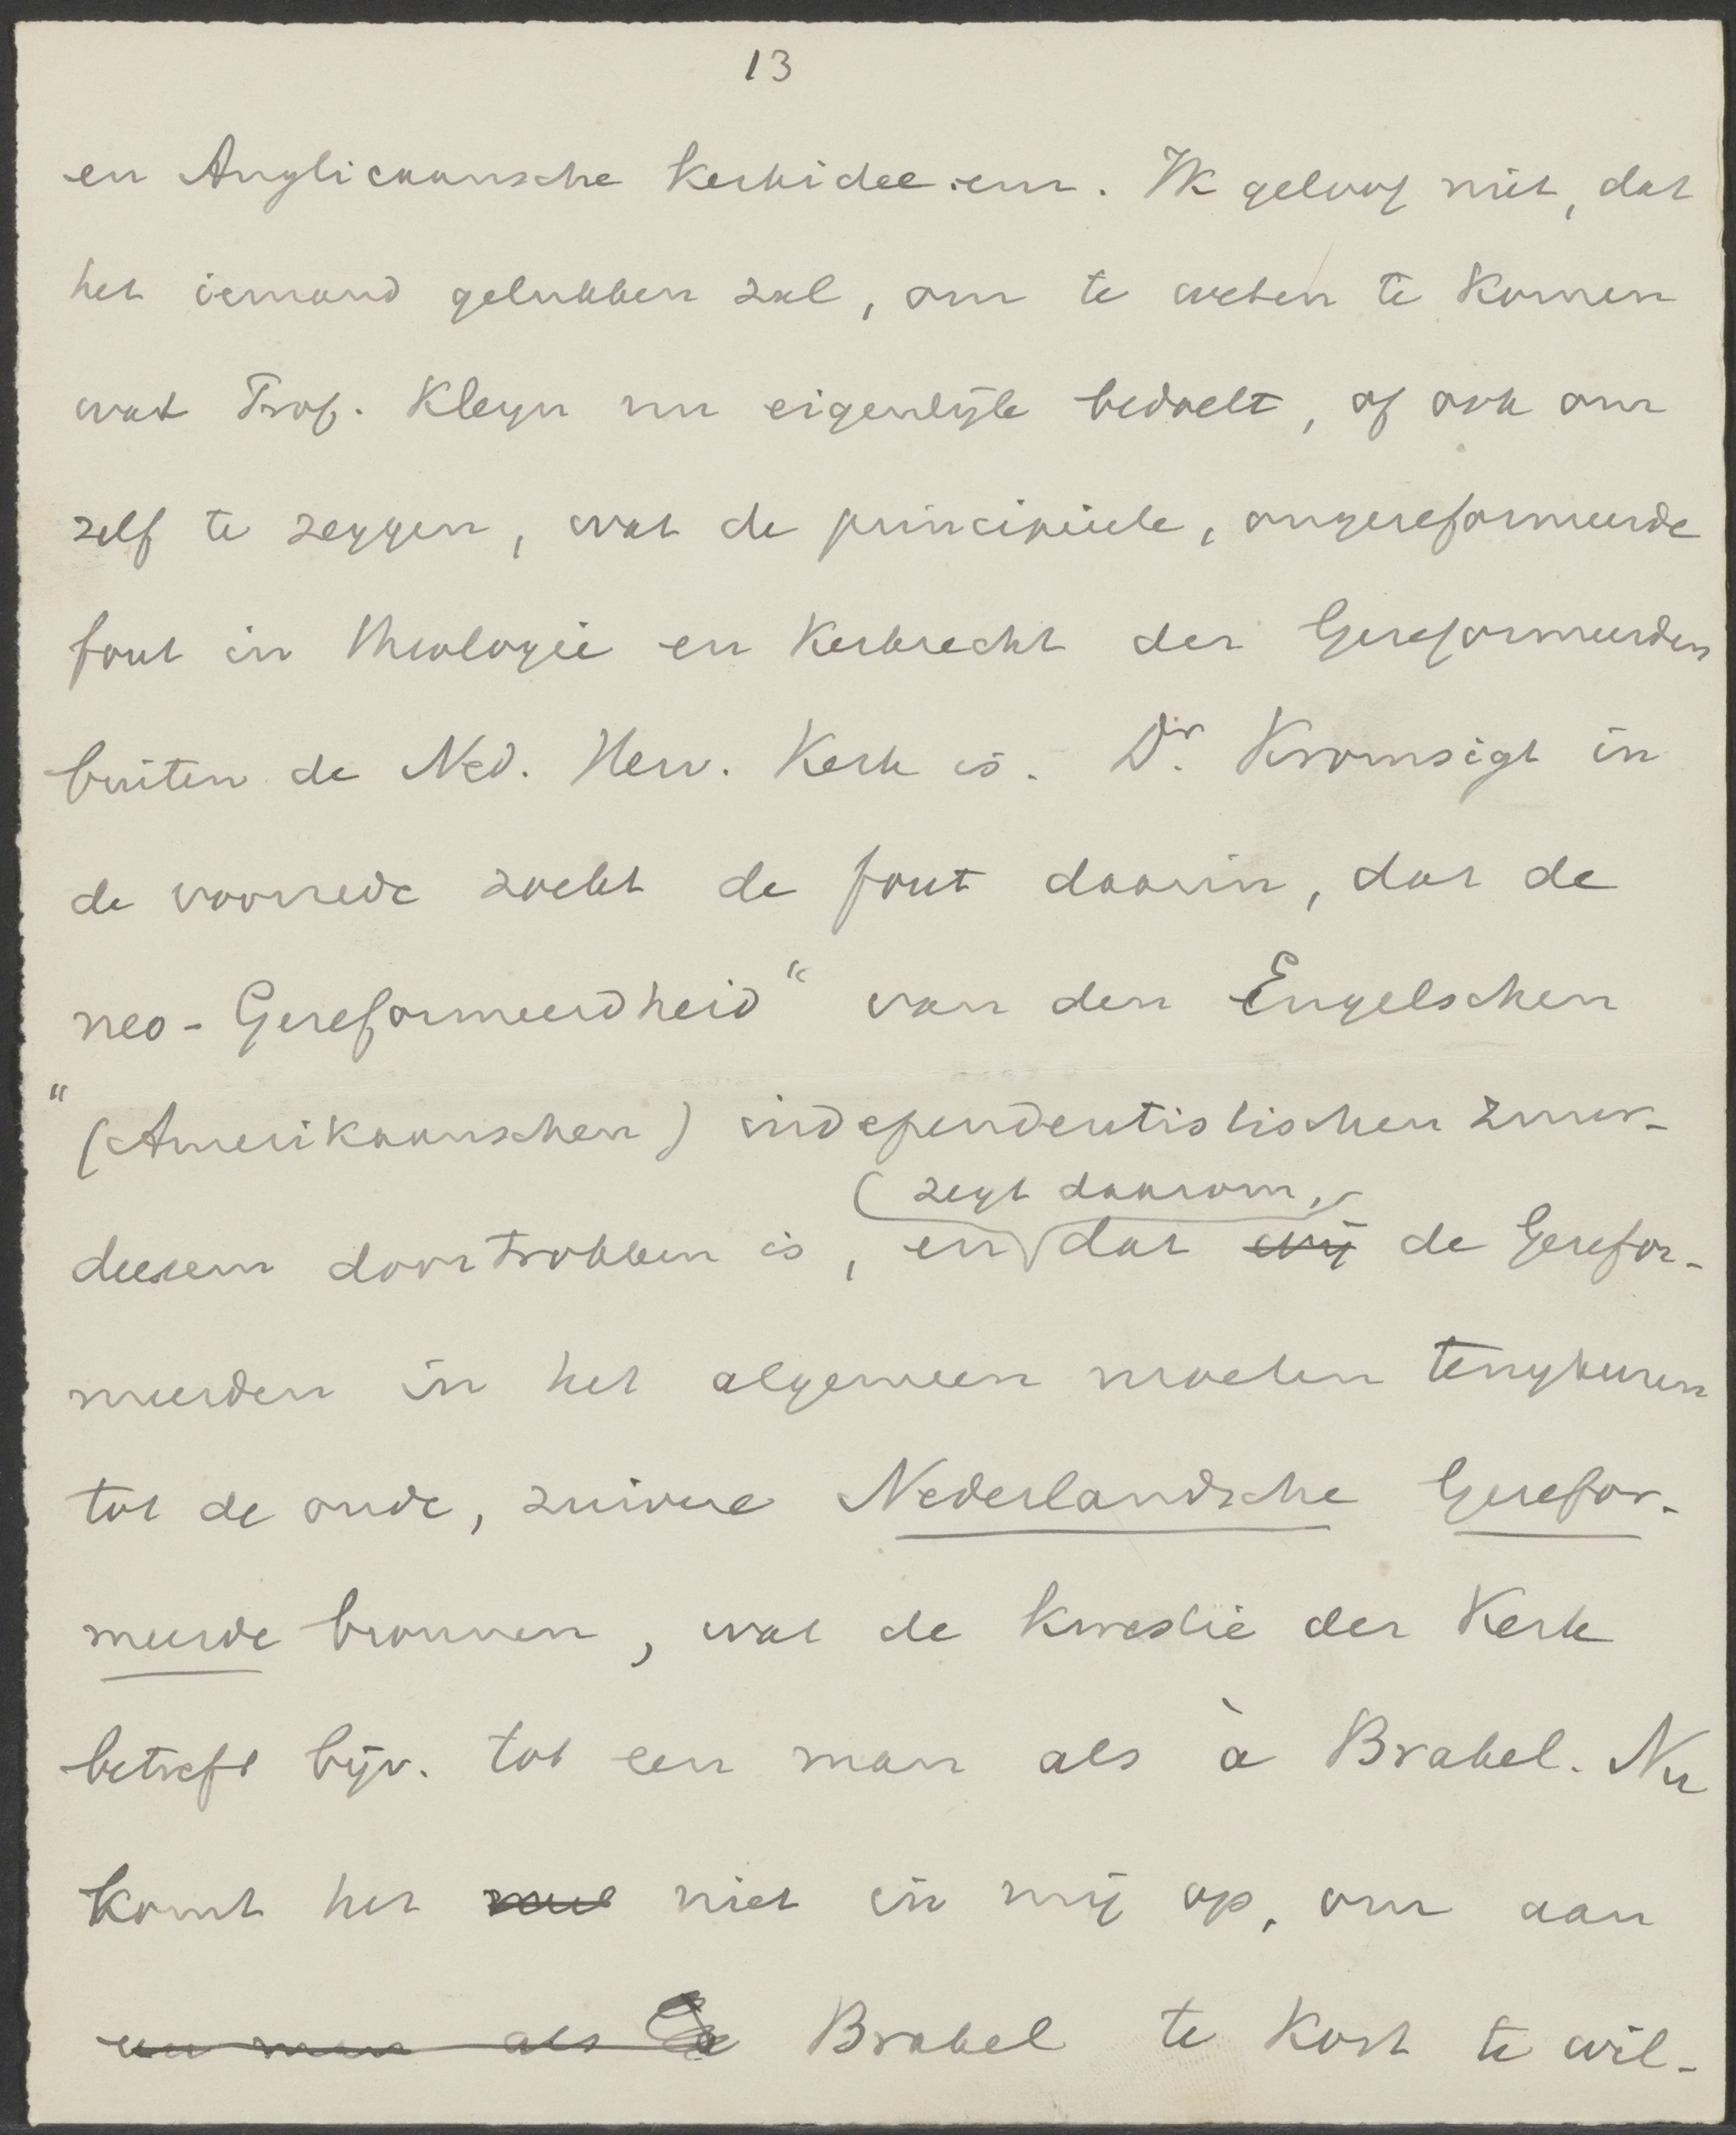 13
en Anglicaansche Kerkidee-en. Ik geloof niet, dat
het iemand gelukken zal, om te weten te komen
wat Prof. Kleyn nu eigenlijk bedoelt, of ook om
zelf te zeggen, wat de principieele, ongereformeerde
fout in theologie en Kerkrecht der Gereformeerden
buiten de Ned. Herv. Kerk is. Dr. Kromsigt in
de voorrede zoekt de fout daarin, dat de
neo-Gereformeerdheid“ van den Engelschen
“(Amerikaanschen) independentistischen zuur-
(zegt daarom,
deesem doortrokken is, en dat wij de Gerefor-
meerden in het algemeen moeten terugkeeren
tot de oude, zuivere Nederlandsche Gerefor-
meerde bronnen, wat de kwestie der Kerk
betreft bijv. tot een man als à Brakel. Nu
komt het niet in mij op, om aan
een man als à Brakel te kort te wil-